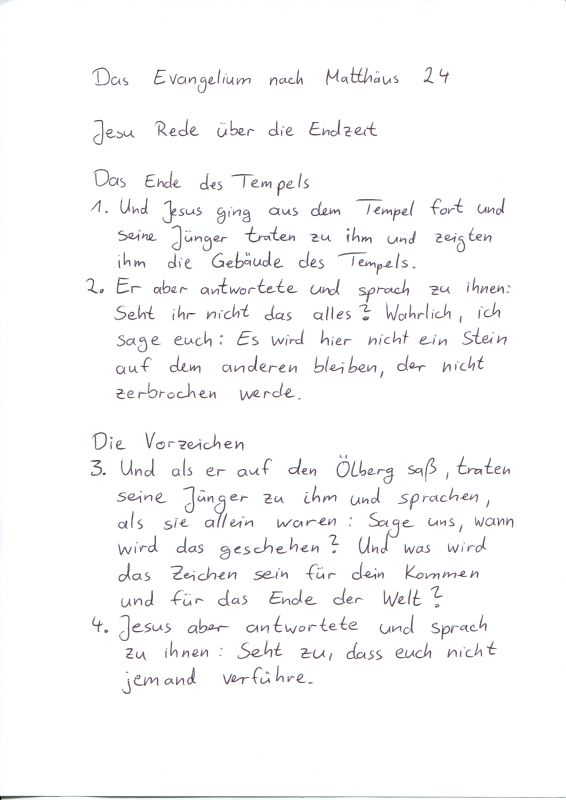 Das Evangelium nach Matthäus 24
Jesu Rede über die Endzeit
Das Ende des Tempels
1. Und Jesus ging aus dem Tempel fort und
seine Jünger traten zu ihm und zeigten
ihm die Gebäude des Tempels.
2. Er aber antwortete und sprach zu ihnen:
Seht ihr nicht das alles? Wahrlich, ich
sage euch: Es wird hier nicht ein Stein
auf dem anderen bleiben, der nicht
zerbrochen werde.
Die Vorzeichen
3. Und als er auf den Ölberg saß, traten
seine Jünger zu ihm und sprachen,
als sie allein waren: Sage uns, wann
wird das geschehen? Und was wird
das Zeichen sein für dein Kommen
und für das Ende der Welt?
4. Jesus aber antwortete und sprach
zu ihnen: Seht zu, dass euch nicht
jemand verführe.